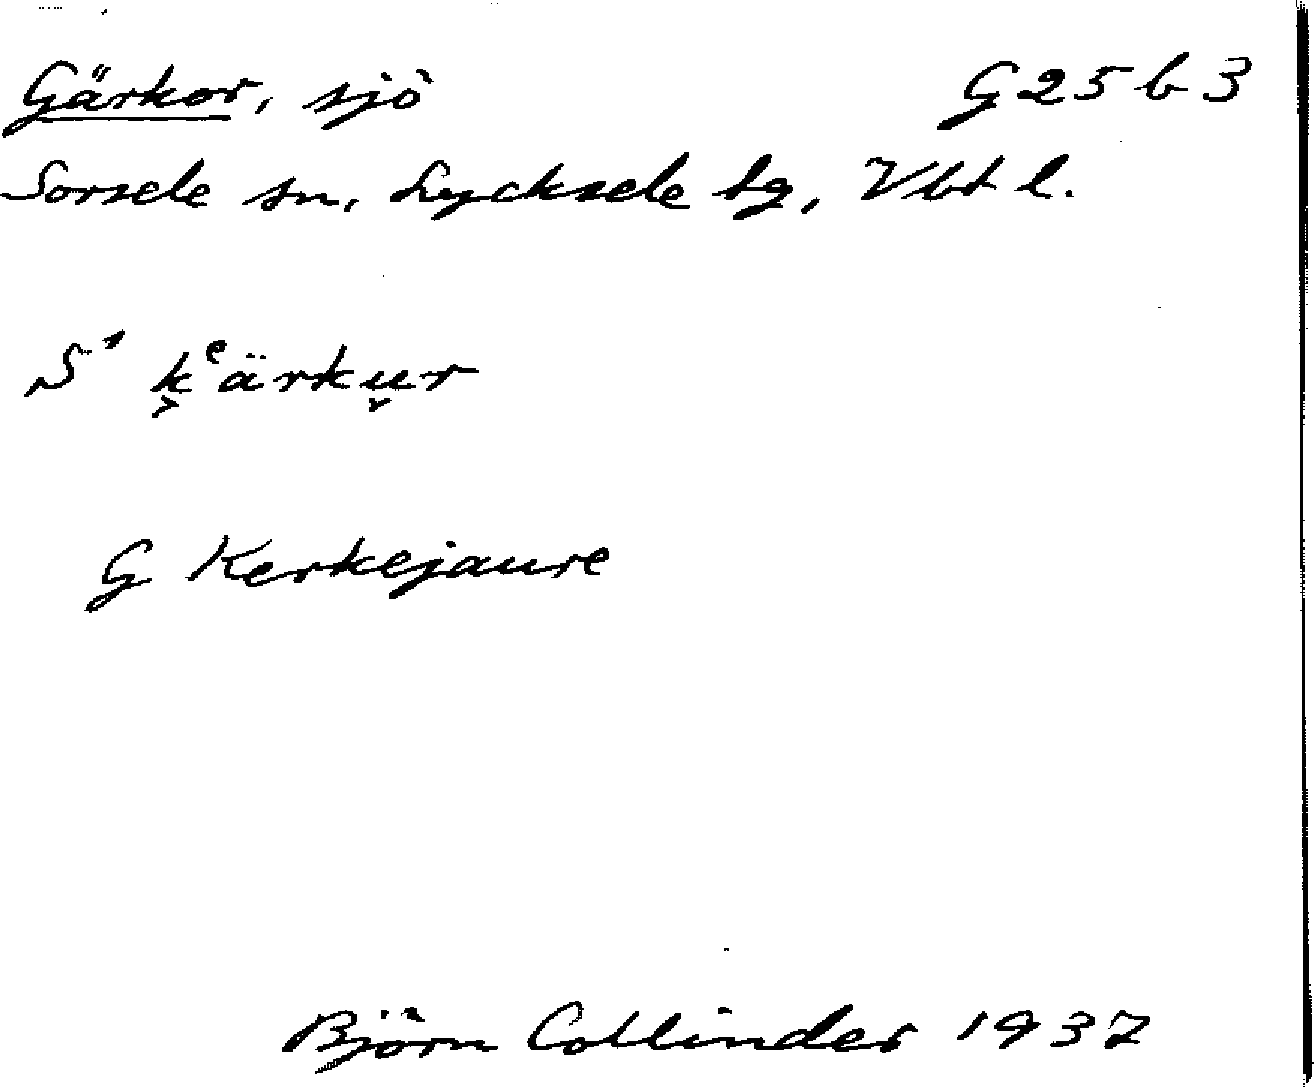 Gärkor, sjö G 25 b 3
Sorsele sn, Lycksele tg, Vbt l.
S' k͔ᵉärku̬r
G Kerkejaure
Björn Collinder 1937